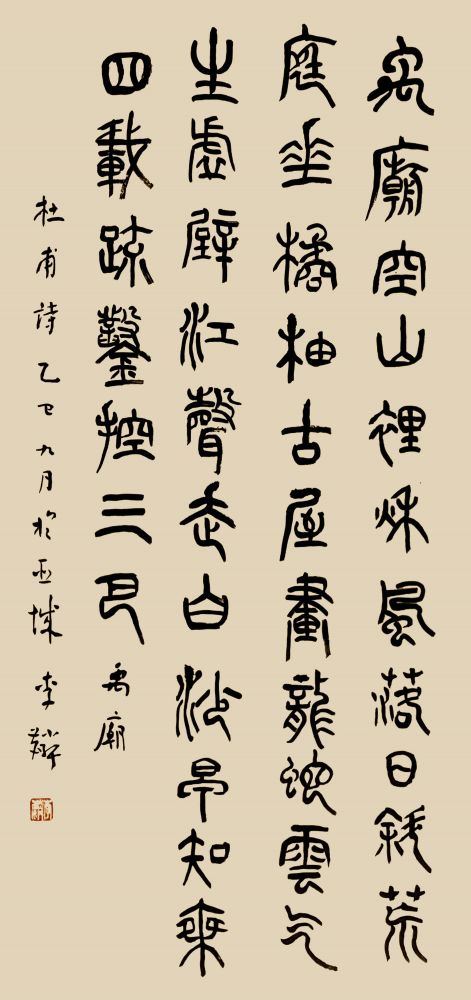 禹廟空山裡秋風落日斜荒
庭垂橘柚古屋畫龍蛇雲气
生虛壁江聲走白沙早知乘
四載疏鑿控三巴 禹廟
杜甫詩乙巳九月於 城 李